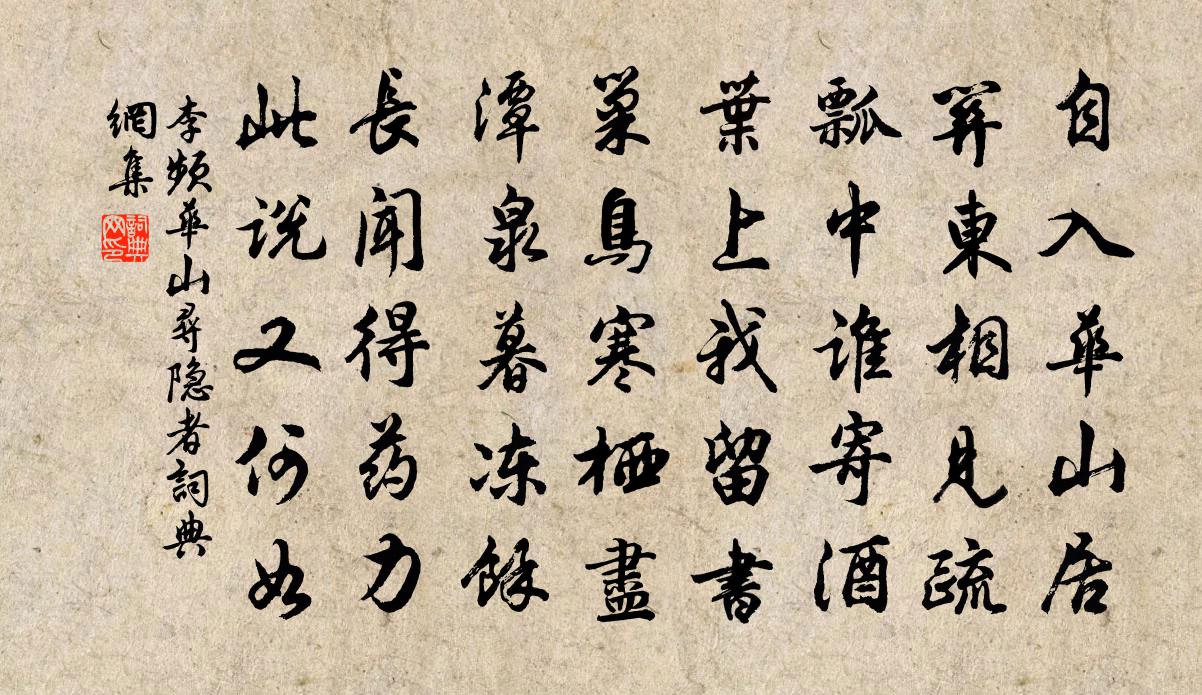 自入華山居
關東相見疏
瓢中誰寄酒
葉上我留書
巢鳥寒栖盡
潭泉暮冻餘
長聞得药力
此説又何如
李頻華山尋隐者詞典
網集
詞典
网印